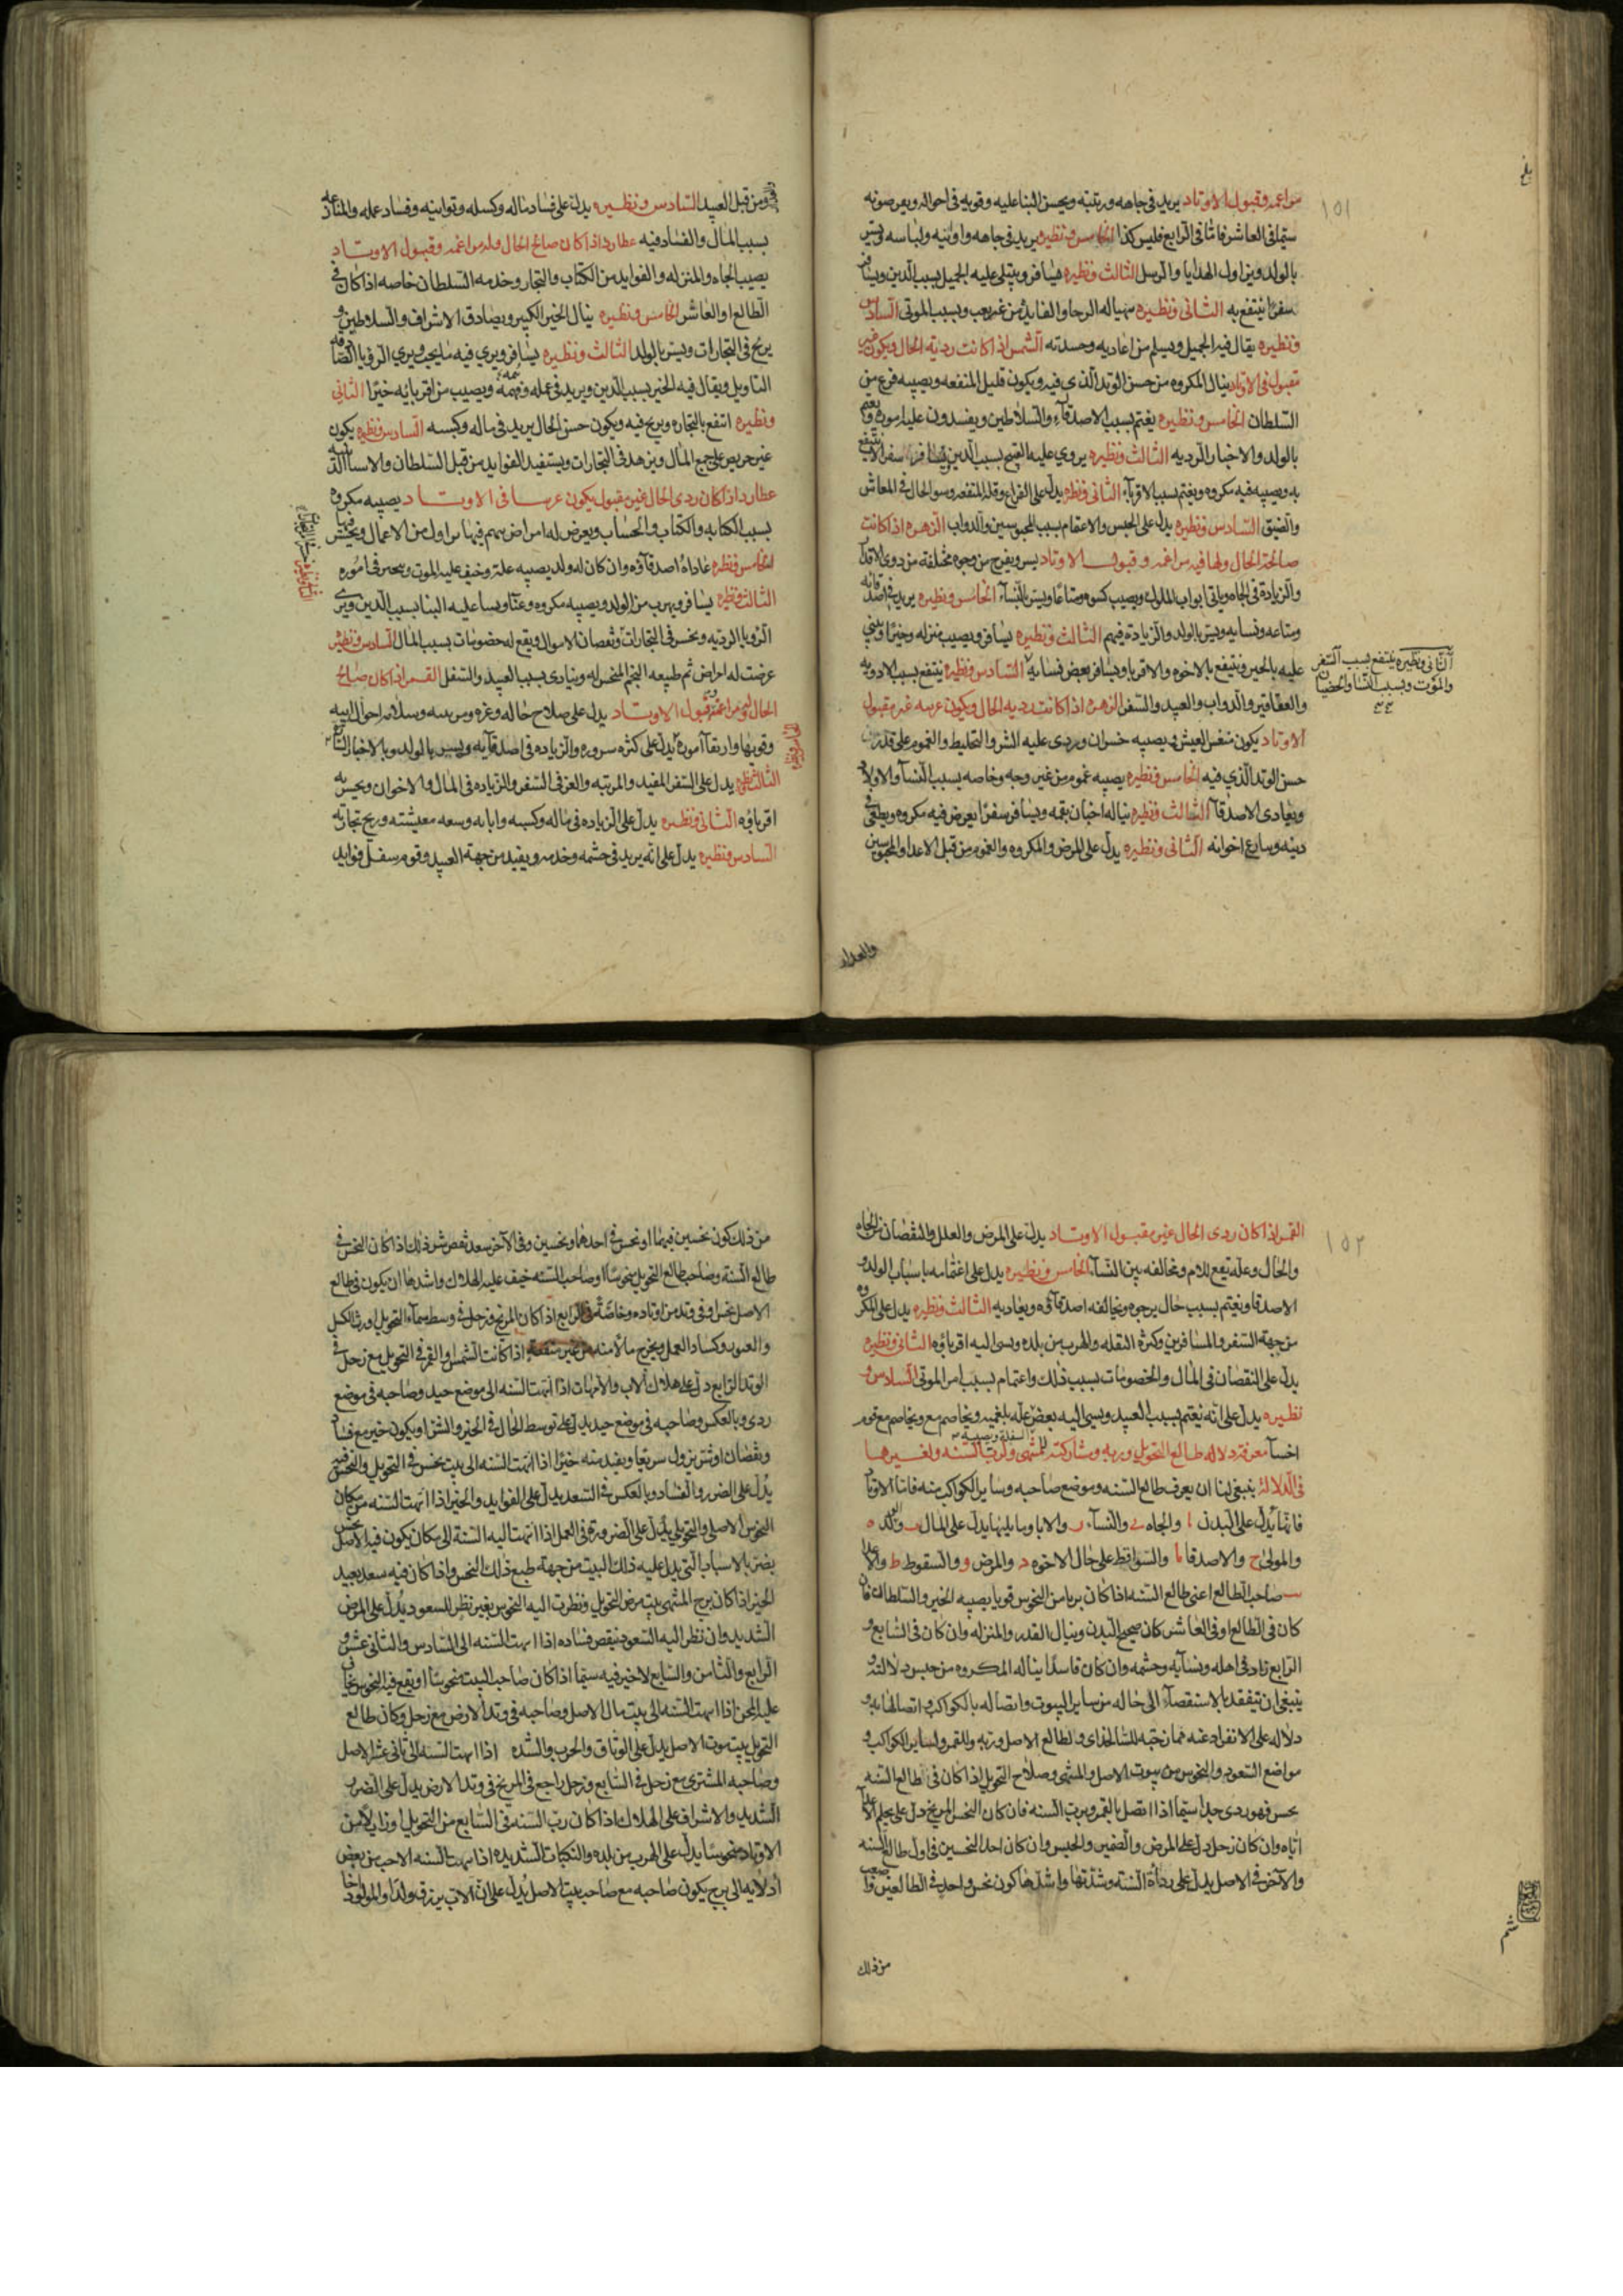 ١٥١
مزاعمه وقبول الاوتاد يزيد في جاهه ومرتبته ويحسن الثنا عليه وقوته في احواله ويعز صوته
سيما في العاشر فاما في الرابع فليس كذا الخامس ونظيره يزيد في جاهه واوانيه ولباسه ويسر
بالولد ويزاول الهدايا والرسل الثالث ونظيره يسافر ويثنى عليه الجميل بسبب الدين ويسافر
سفرا ينتفع به الثاني ونظيره يناله الرجا والفايدة من غير وجه وبسبب الموتى السادس
ونظيره يقال فيه الجميل ويسلم من اعاديه وحسدته الشمس اذا كانت ردية الحال ويكون غير
مقبول في الاوتاد ينال المكروه من حسن الوتد الذي فيه ويكون قليل المنفعه ويصيبه فزع من
السلطان الخامس ونظيره يغتم بسبب الاصدقاء والسلاطين ويفسدون عليه اموره ويغتم
بالولد والاخبار الرديه الثالث ونظيره يروي عليه القبيح بسبب الدين ويسافر سفرا لا ينتفع
به ويصيبه فيه مكروه ويغتم بسبب الاقرباء الثاني ونظيره يدل على الفزع وقلة المنفعه وسو الحال في المعاش
والضيق السادس ونظيره يدل على الحبس والاغتمام بسبب المحبوسين والدواب الزهره اذا كانت
صالحة الحال ولها فيه مزاعمه وقبول الاوتاد يسر ويفرح من وجوه مختلفة من ذوي الاقدار
والزيادة في الجاه وياتي ابواب الملوك ويصيب كسوه ومتاعا ويسر بالنساء الخامس ونظيره يزيد في اصدقائه
ومتاعه ونسايه ويسر بالولد والزيادة فيهم الثالث ونظيره يسافر ويصيب منزله وخيرا ويثني
عليه بالخير وينتفع بالاخوه والاقربا ويسافر بعض نسايه السادس ونظيره ينتفع بسبب الادويه
الثاني ونظيره ينتفع بسبب السفر
والموت وبسبب النسا والخصيان
والعقاقير والدواب والعبيد والسفر الزهره اذا كانت رديه الحال ويكون عربيه غير مقبول
الاوتاد يكون منغص العيش ويصيبه خسران ويردى عليه الشر والتخليط والغموم على قدر
حسن الوتد الذي فيه الخامس ونظيره يصيبه غموم من غير وجه وخاصه بسبب النسآ والاولاد
ويعادي الاصدقآ الثالث ونظيره يناله اخبار بغمه ويسافر سفرا يعرض فيه مكروه ويطعن في
دينه وينازع اخوانه الثاني ونظيره يدل على المرض والمكروه والغموم من قبل الاعدا والمحبوسين
والعداء
ومن قبل العبيد السادس ونظيره يدل على فساد ماله وكسله وتوانيه وفساد عمله والمنازعه
بسبب المال والفساد فيه عطارد اذا كان صالح الحال وله مزاعمه وقبول الاوتاد
يصيب الجاه والمنزله والفوايد من الكتاب والتجار وخدمه السلطان خاصه اذا كان في
الطالع او العاشر الخامس ونظيره ينال الخير الكبير ويصادق الاشراف والسلاطين و
يربح في التجارات ويسر بالولد الثالث ونظيره يسافر ويرى فيه ما يحب ويرى الرؤيا الصادقه
التاويل ويقال فيه الخير بسبب الدين ويزيد في عمله وفهمه ويصيب من اقربائه خيرا الثاني
ونظيره انتفع بالتجاره ويربح فيه ويكون حسن الحال يزيد في ماله وكسبه السادس ونظيره يكون
غير حريص على جمع المال ويزهد في التجارات ويستفيد الفوايد من قبل السلطان والاسباب الدنيه
عطارد اذا كان ردي الحال غير مقبول يكون عربيا في الاوتاد يصيبه مكروه
بسبب الكتابه والكتاب والحساب ويعرض له امراض فيما يزاول من الاعمال ويخسر فيها
الخامس ونظيره عاداه اصدقاؤه وان كان له ولد يصيبه علة وخيف عليه الموت ويتحير في اموره
الثالث ونظيره يسافر ويهرب من الولد ويصيبه مكروه وعنا ويسا عليه الثنا بسبب الدين ويرى
الرويا الرديه ويخسر في التجارات ونقصان الاموال ويقع له خصومات بسبب المال السادس ونظيره
عرضت له امراض ثم طبيعه النجم المنحس له ويتاذى بسبب العبيد والسفل القمر اذا كان صالح
الحال وله مزاعمه وقبول الاوتاد يدل على صلاح حاله وعزه ومرتبته وسلامه احوال ابيه
وقوتها وارتقآ اموره يدل على كثره سروره والزياده في اصدقآيه ويسر بالولد وبالاخبار السارة
الثالث ونظيره يدل على السفر المفيد والمرتبه والعز في السفر والزياده في المال والاخوان ويحسن به
اقرباؤه الثاني ونظيره يدل على الزياده في ماله وكسبه وسعه معيشته وربح تجارته
السادس ونظيره يدل على انه يزيد في حشمه وخدمه ويفيد من جهة العبيد وقوم سفل فوايد
١٥٢
القمر اذا كان ردي الحال غير مقبول الاوتاد يدل على المرض والعلل والنقصان في الجاه
والحال وعله تقع للام ومخالفه بين النسآ الخامس ونظيره يدل على اغتمامه باسباب الولد و
الاصدقا ويغتم بسبب حال يرجوه ويخالفه اصدقآؤه ويعاديه الثالث ونظيره يدل على المكروه
من جهة السفر والمسافرين وكثرة النقله والهرب من بلده ويسي اليه اقرباؤه الثاني ونظيره
يدل على النقصان في المال والخصومات بسبب ذلك واغتمام بسبب امر الموتى السادس و
نظيره يدل على انه يغتم بسبب العبيد ويسي اليه بعض عله بلغميه ويخاصم مع قوم
اخسآ معرفة دلاله طالع التحويل وربه ومشاركته للمنتهى ولرب السنه ولغيرها
في الدلالة ينبغي لنا ان يعرف طالع السنه وموضع صاحبه وساير الكواكب منه فاما الاوتاد
فانها يدل على البدن ا والجاه ي والنسآء ز والابا وما يليها يدل على المال ب والولد ه
والموتى ح والاصدقا يا والسواقط على حال الاخوه ج والمرض و والسقوط ط والاعدا
يب صاحب الطالع اعني طالع السنه اذا كان بريا من النحوس قويا يصيبه الخير والسلطان فان
كان في الطالع او في العاشر كان صحيح البدن وينال القدر والمنزله وان كان في السابع و
الرابع زاد في اهله ونسآيه وحشمه وان كان فاسدا يناله المكروه من جنس دلالته و
ينبغي ان يتفقد بالاستقصآء الى حاله من ساير البيوت واتصاله بالكواكب واتصالها به و
دلاله على الانفراد عنه ممازجته للسالخداى والطالع الاصل وربه وللقمر ولساير الكواكب و
مواضع السعود والنحوس من بيوت الاصل والمنتهى وصلاح التحويل اذا كان في طالع السنه
نحس فهو ردي جدا سيما اذا اتصل بالقمر وبرب السنه فان كان النحس المريخ دل على
اياه وان كان زحل دل على المرض والضمير والحبس وان كان احد النحسين في اول طالع السنه
والآخر في الاصل يدل على رداءة السنه وشدتها واشدها كون نحس واحد في الطالعين
من ذلك
من ذلك كون نحسين فيهما او نحس في احدهما ونحسين وفي الآخر سعد نقص شر ذلك اذا كان النحس في
طالع السنة وصاحب طالع التحويل منحوسا او صاحب السنه خيف عليه الهلاك واشدها ان يكون في طالع
الاصل نحس او في وتد من اوتاده وخاصة الرابع اذا كان المريخ وزحل في وسط سمآء التحويل اورث الكسل
والعبوس وكساد العمل ويخرج مالا منه من غير منفعة اذا كانت الشمس او القمر في التحويل مع زحل في
الوتد الرابع دل على هلاك الاب والامهات اذا انتهت السنه الى موضع جيد وصاحبه في موضع
ردي وبالعكس وصاحبه في موضع جيد يدل على توسط الحال في الخير والشر او يكون خير مع فساد
ونقصان او شر يزول سريعا ويفيد منه خيرا اذا انتهت السنه الى بيت نحس في التحويل والنحس فيه
يدل على الضرر والفساد وبالعكس في السعد يدل على الفوايد والخير اذا انتهت السنه من مكان
النحوس الاصلي والتحويلي يدل على الضرورة في العمل اذا انتهت اليه السنة الى مكان يكون فيه نحس الاصل
يضر بالاسباب التي يدل عليه ذلك البيت من جهة طبع ذلك النحس واذا كان فيه سعد يفيد
الخير اذا كان برج المنتهى بيت مرض التحويل ونظرت اليه النحوس بغير نظر للسعود يدل على المرض
الشديد وان نظر اليه السعود ينقص فساده اذا انتهت السنه الى السادس والثاني عشر و
الرابع والثامن والسابع لا خير فيه سيما اذا كان صاحب البيت منحوسا او يقع فيه النحوس يخاف
عليه المحن اذا انتهت السنه الى بيت مال الاصل وصاحبه في وتد الارض مع زحل وكان طالع
التحويل بيت موت الاصل يدل على الوثاق والحرب والشده اذا انتهت السنه الى ثاني عشر الاصل
وصاحبه المشتري مع زحل في السابع وزحل راجع في المريخ في وتد الارض يدل على الضرر
الشديد والاشراف على الهلاك اذا كان رب السنه في السابع من التحويل او زايلا من
الاوتاد منحوسا يدل على الهرب من بلده والنكبات الشديده اذا انتهت السنه الاحب من بعض
ادلايه الى برج يكون صاحبه مع صاحب بيت الاصل يدل على ان الاب يرزق ولدا والمولود اخا